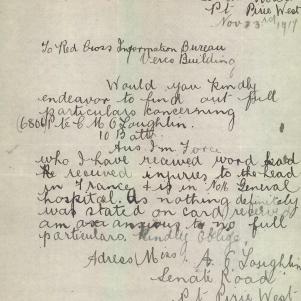 Pt Pirie West
Nov 23rd 1917
To Red Cross Information Bureau
Verco Building
Would you kindly
endeavor to find out full
particulars concerning
(6804) Pte C M O Loughlin.
10 Batt.
Aus Im Force
who I have received word
he received injuries to the head
in France & is in General
hospital. As nothing definitely
was stated on card received
am anxious to full
particulars. Kindly Oblige.
Adress Mrs A. E O Loughlin
Senate Road
Pt Pirie West